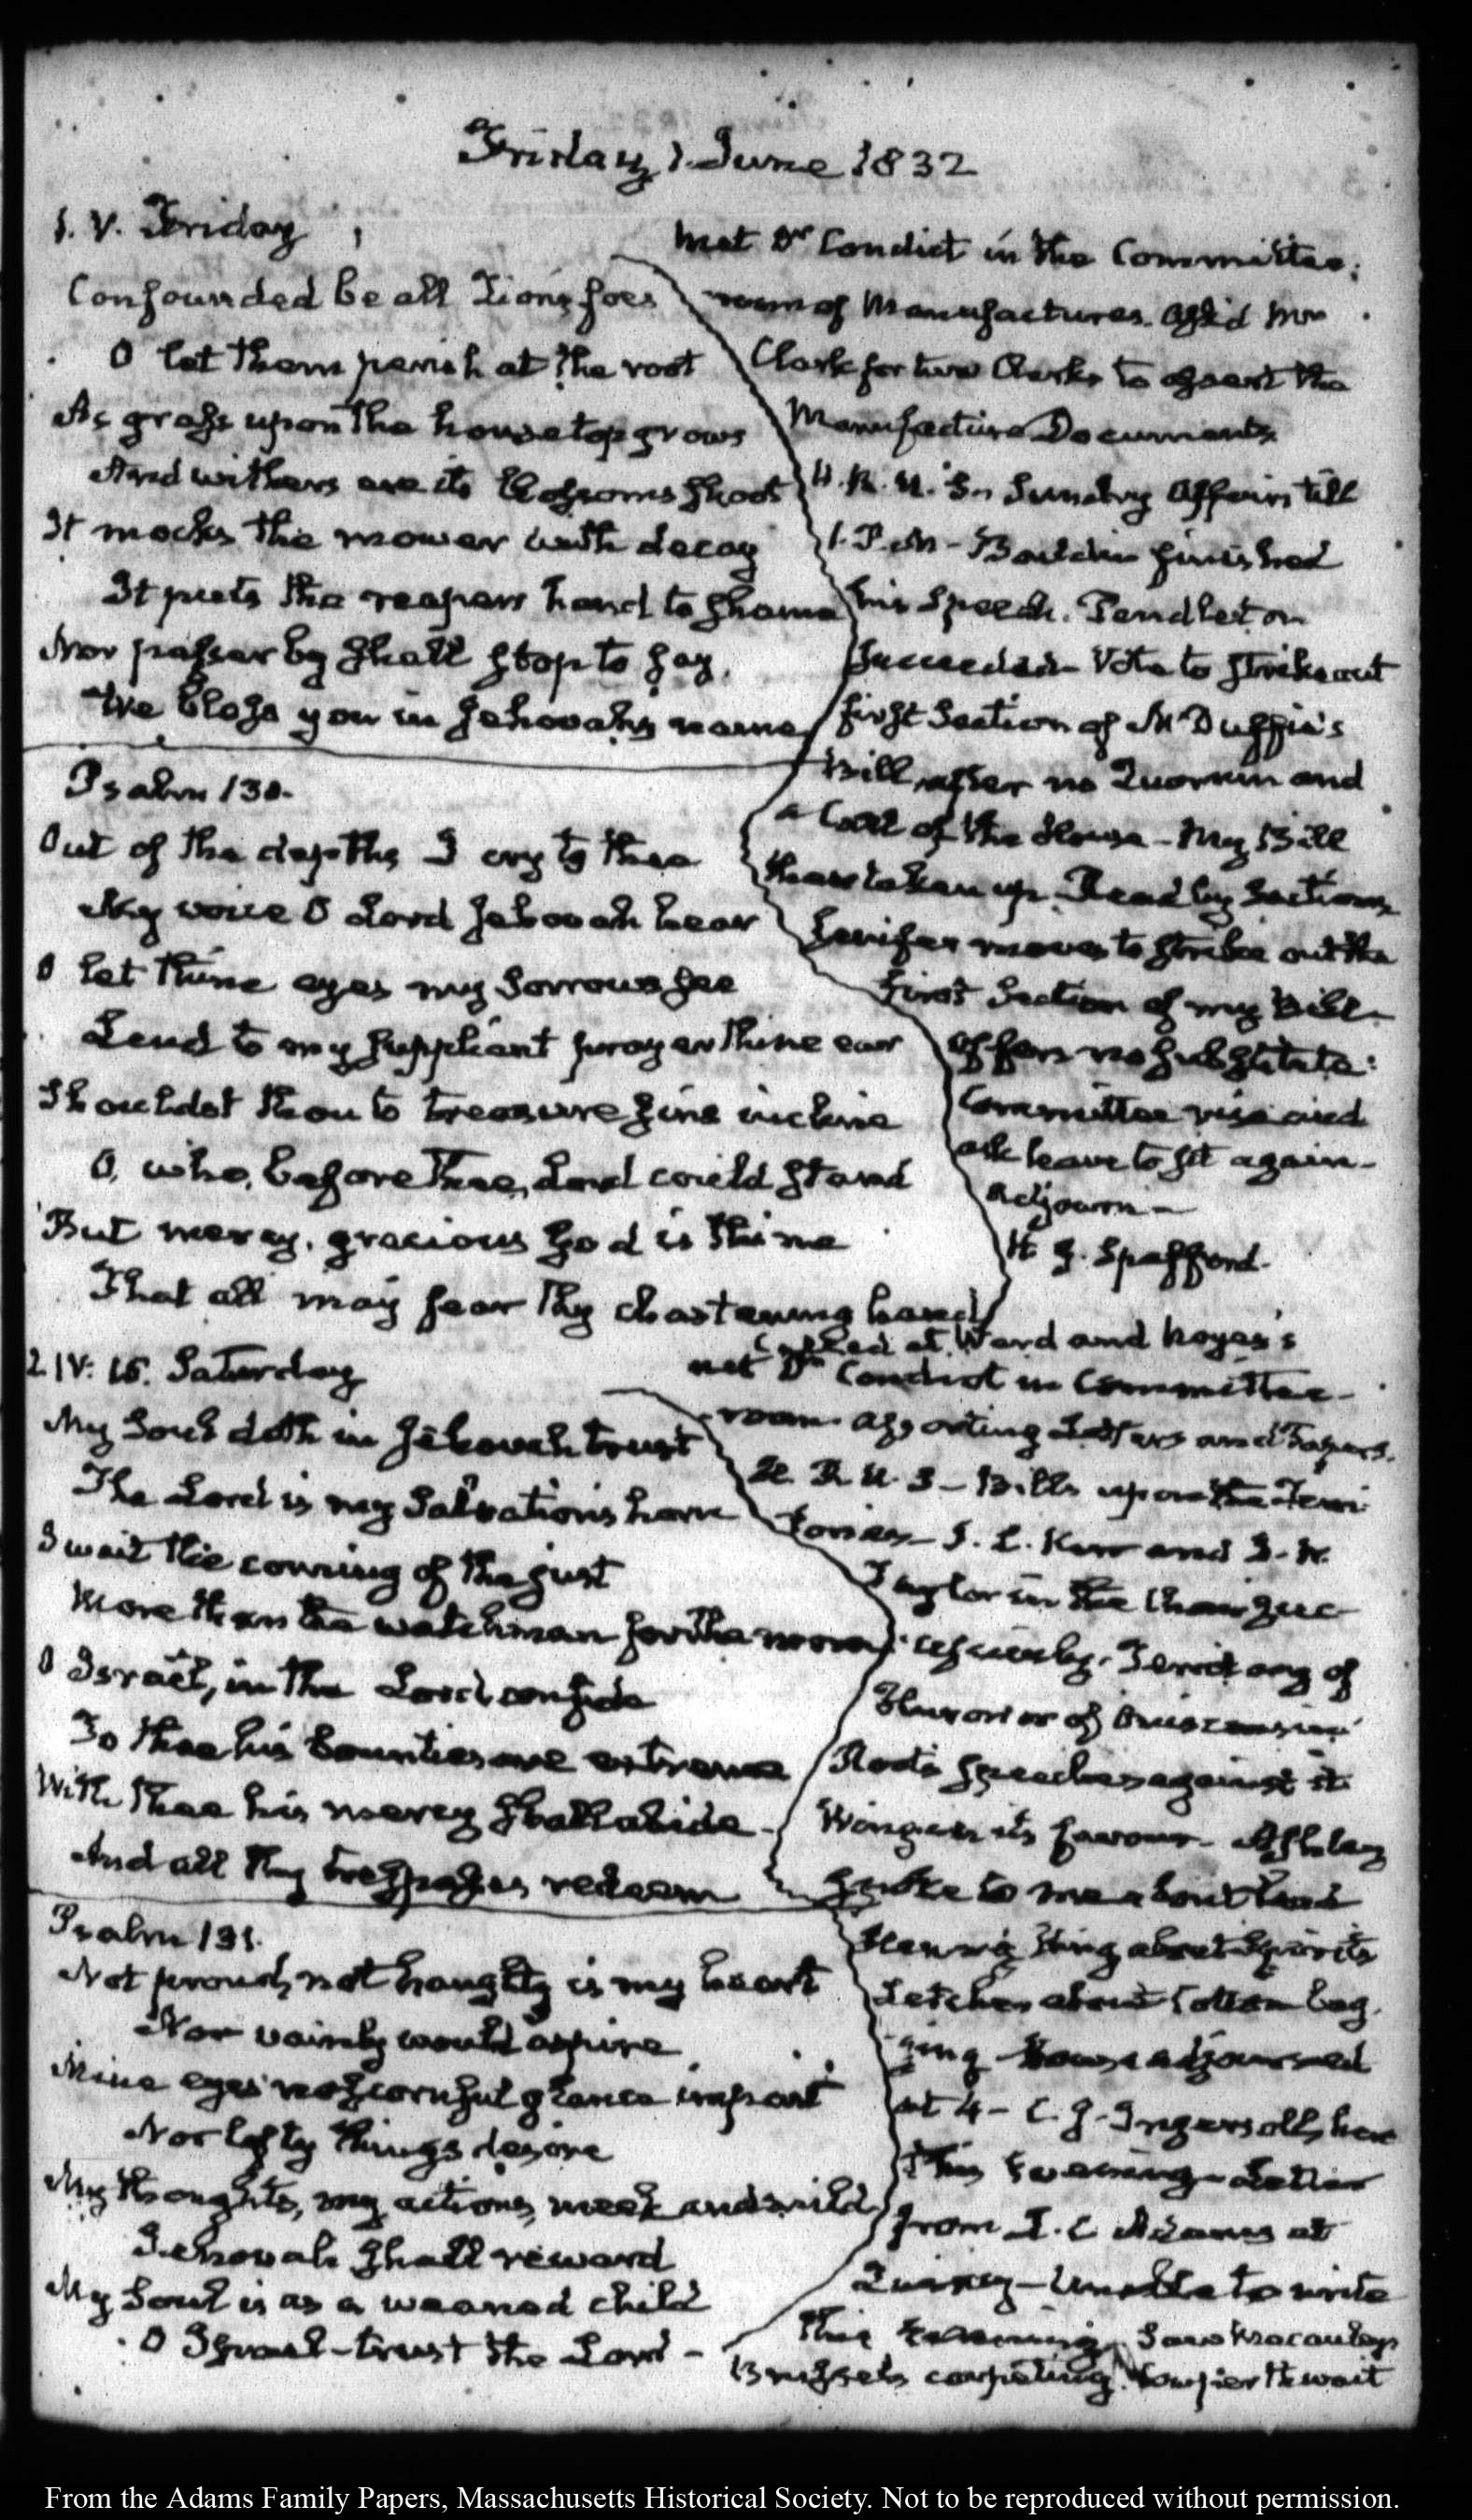 Friday 1. June 1832
1. V. Friday
Confounded be all Zions foes
O let them perish at the root
As grass upon the housetop grows
And withers ere its blossoms shoot
It mocks the mower with decay
It puts the reapers hand to shame
Nor passer by shall stop to say,
We bless you in Jehovahs name
Psalm 130.
Out of the depths I cry to thee
My voice O Lord Jehovah hear
O let thine eyes my sorrows see
Lend to my suppliant prayer thine ear
Shouldst thou to treasure sins incline
O, who, before Thee, Lord could stand
But mercy, gracious God is thine
That all may fear thy chastening hand
met Dr Condict in the Committee
room of Manufactures. Ask'd Mr
Clark for two Clerks to assort the
Manufacture Documents
H. R. U. S. Sundry Affairs till
1. P.M - Bouldin finished
his Speech. Pendleton
succeeded - Vote to strike out
first Section of McDuffie's
Bill, after no Quorum and
a Call of the House - My Bill
then taken up. Read by Sections
Jenifer moves to strike out the
first Section of my Bill -
offers no substitute:
Committee rise and
ask leave to sit again -
Adjourn -
H. G. Spafford.
2. IV: 15. Saturday
My Soul doth in Jehovah trust
The Lord is my Salvation's horn
I wait the coming of the just
More than the watchman for the morn
O Israel, in the Lord confide
To thee his bounties are extreme
With thee his mercy shall abide
And all thy trespasses redeem
Psalm 131.
Not proud, not haughty is my heart
Nor vainly would aspire
Mine eyes no scornful glance impart
Nor lofty things desire
My thoughts, my actions, meek and mild
Jehovah shall reward
My Soul is as a weaned child
O Israel - trust the Lord -
Called at Ward and Noyes's
met Dr Condict in Committee -
room assorting Letters and Papers.
H. R. U. S - Bills upon the Terri
tories - J. L. Kerr and J. W.
Taylor in the Chair suc-
cessively. Territory of
Huron or of Ouisconsin
Root's speeches against it
Wing in its favour - Ashley
spoke to me about Lead
Henry King about Spirits
Letcher about Cotton bag
ging - House adjourned
at 4 - C. J. Ingersoll, here
this Evening - Letter
from T. B. Adams at
Quincy - Unable to write
this Evening. Saw Macauley
Brussels carpeting. Cowper Thwait
From the Adams Family Papers, Massachusetts Historical Society. Not to be reproduced without permission.